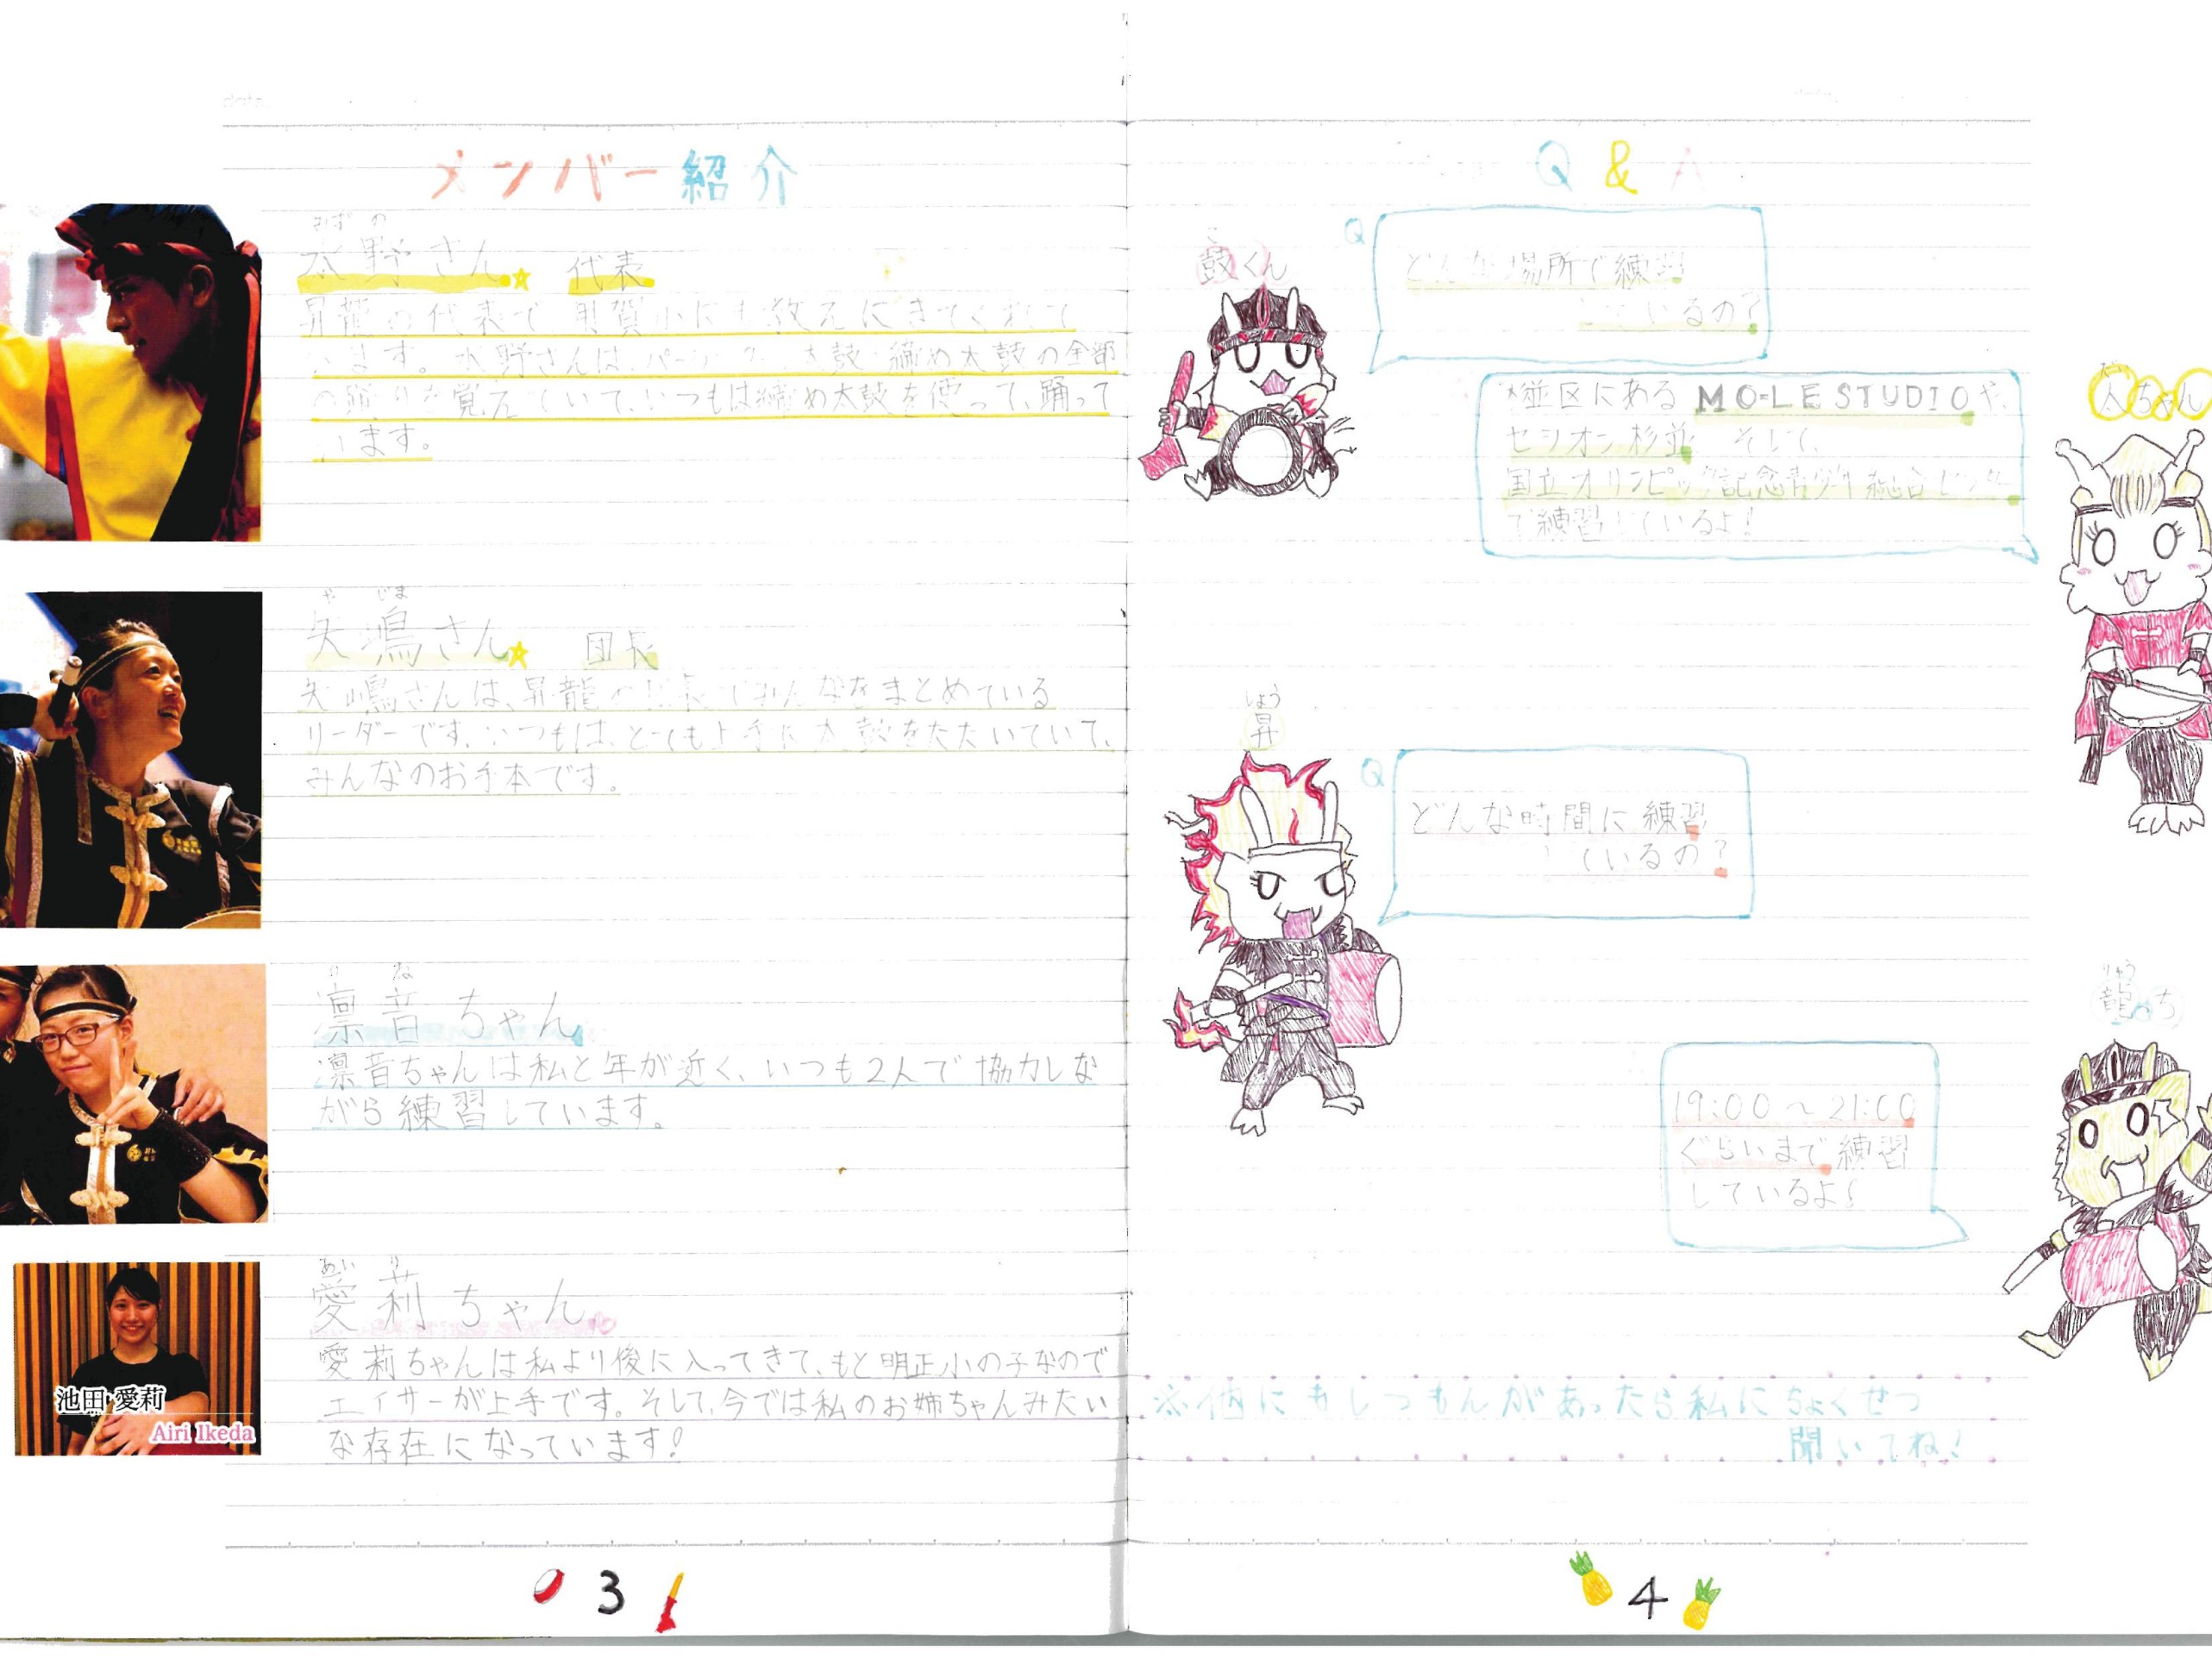 メンバー紹介
みずの
水野さん 代表
昇龍の代表で 用賀小にも教えにきてくれて
います。水野さんは、パーランクー、大太鼓、締め太鼓の全部
の踊りを覚えていて、いつもは締め太鼓を使って、踊って
います。
やじま
矢嶋さん 団長
矢嶋さんは、昇龍の団長でみんなをまとめている
リーダーです。いつもは、とても上手に太鼓をたたいていて、
みんなのお手本です。
りな
凛音ちゃん
凛音ちゃんは私と年が近く、いつも2人で協力しな
がら練習しています。
あいり
愛莉ちゃん
愛莉ちゃんは私より後に入ってきて、もと明正小の子なので
エイサーが上手です。そして、今では私のお姉ちゃんみたい
な存在になっています!
池田 愛莉
Airi Ikeda
3
Q & A
こ
鼓くん
Q
どんな場所で練習
しているの?
ちゃん
杉並区にあるMOLE STUDIOや、
セシオン杉並 そして、
国立オリンピック記念青少年総合センター
で練習しているよ!
しょう
昇
Q
どんな時間に練習
しているの?
りゅう
龍っち
19:00~21:00
ぐらいまで練習
しているよ!
※他にもしつもんがあったら私にちょくせつ
聞いてね!
4